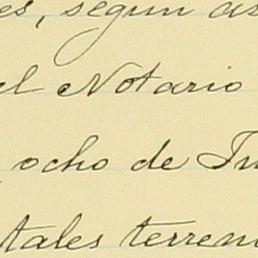 es, segun as
el Notario
ocho de Ju
tales terren